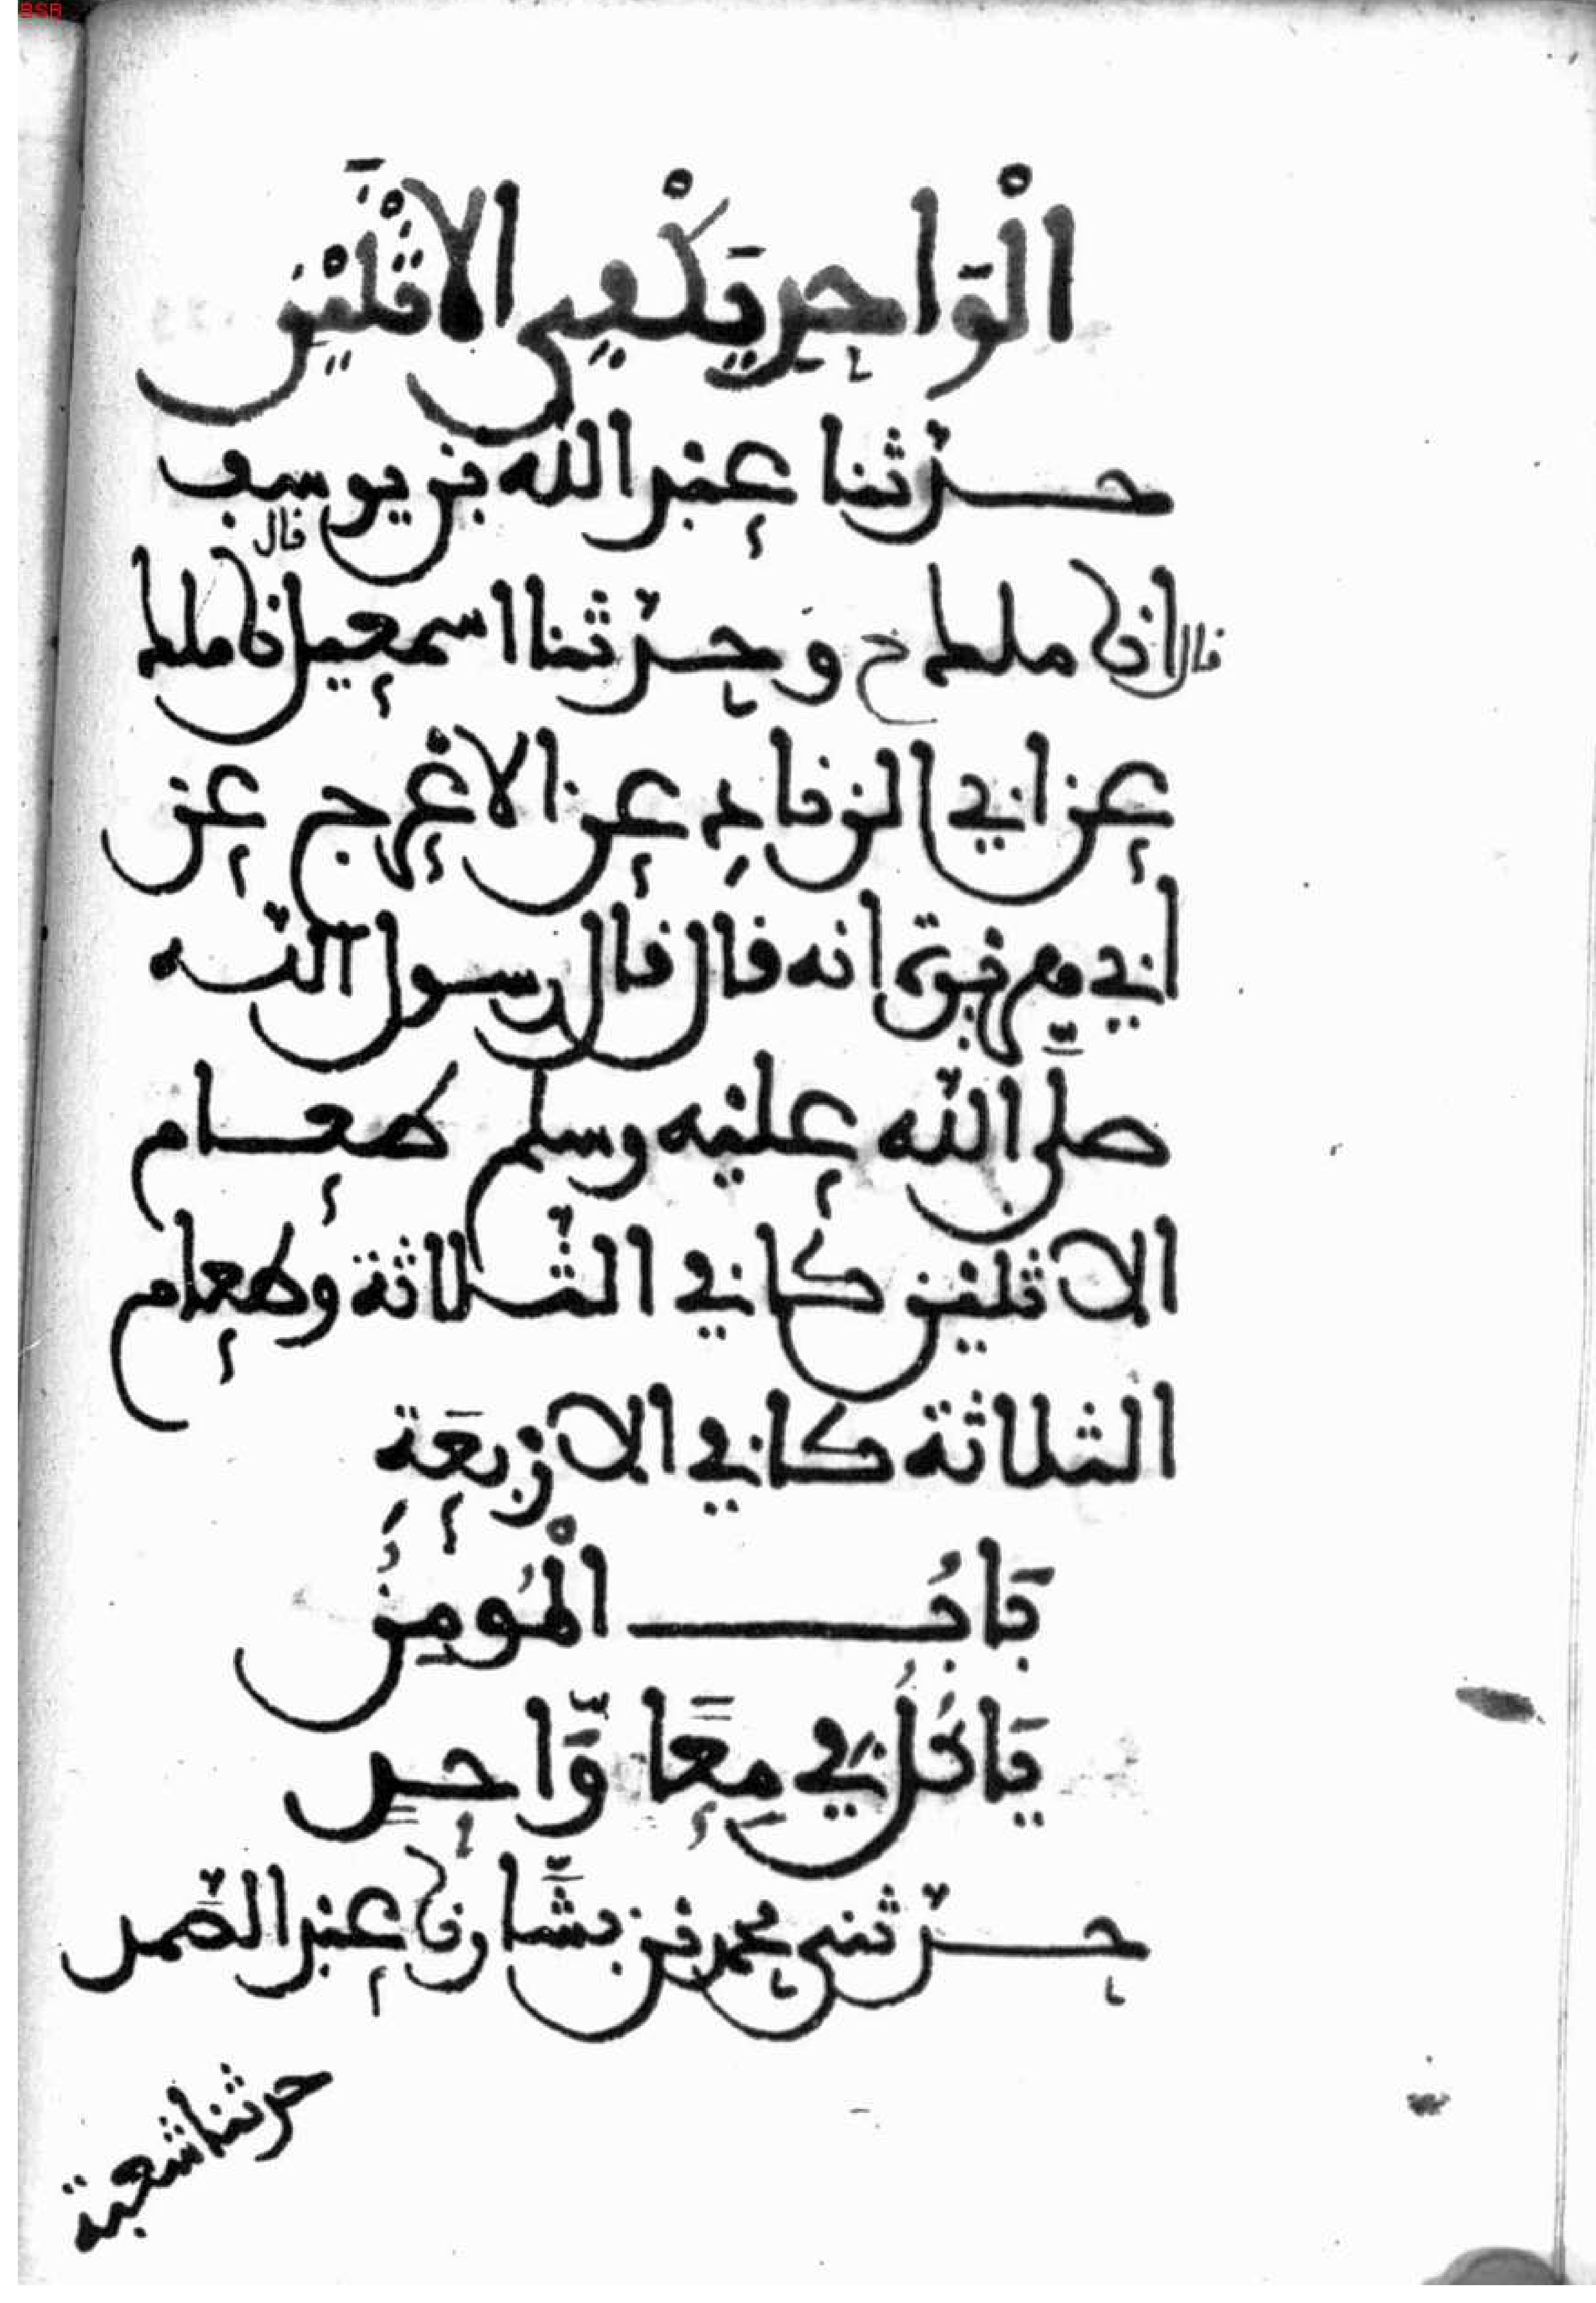 BSR
الْوَاحِدِ يَكْفِي الِاثْنَيْنِ
حدّثنا عبد الله بن يوسف
قال انا ملك ح وَحدّثنا اسمعيل قال نا ملك
عن ابي الزناد عن الاعْرج عن
ابي هريرة انه قال قال رسول اللّه
صلّى اللّه عليْه وسلم طعام
الاثنين كافي الثّلاثة وطعام
الثلاثة كافي الارْبعَةِ
بَابُ الْمُومِنُ
يَاكُلُ فِي مِعًا وَّاحِدٍ
حدّثني محمد بن بشّار نا عبد الصّمد
حدثنا شعبة